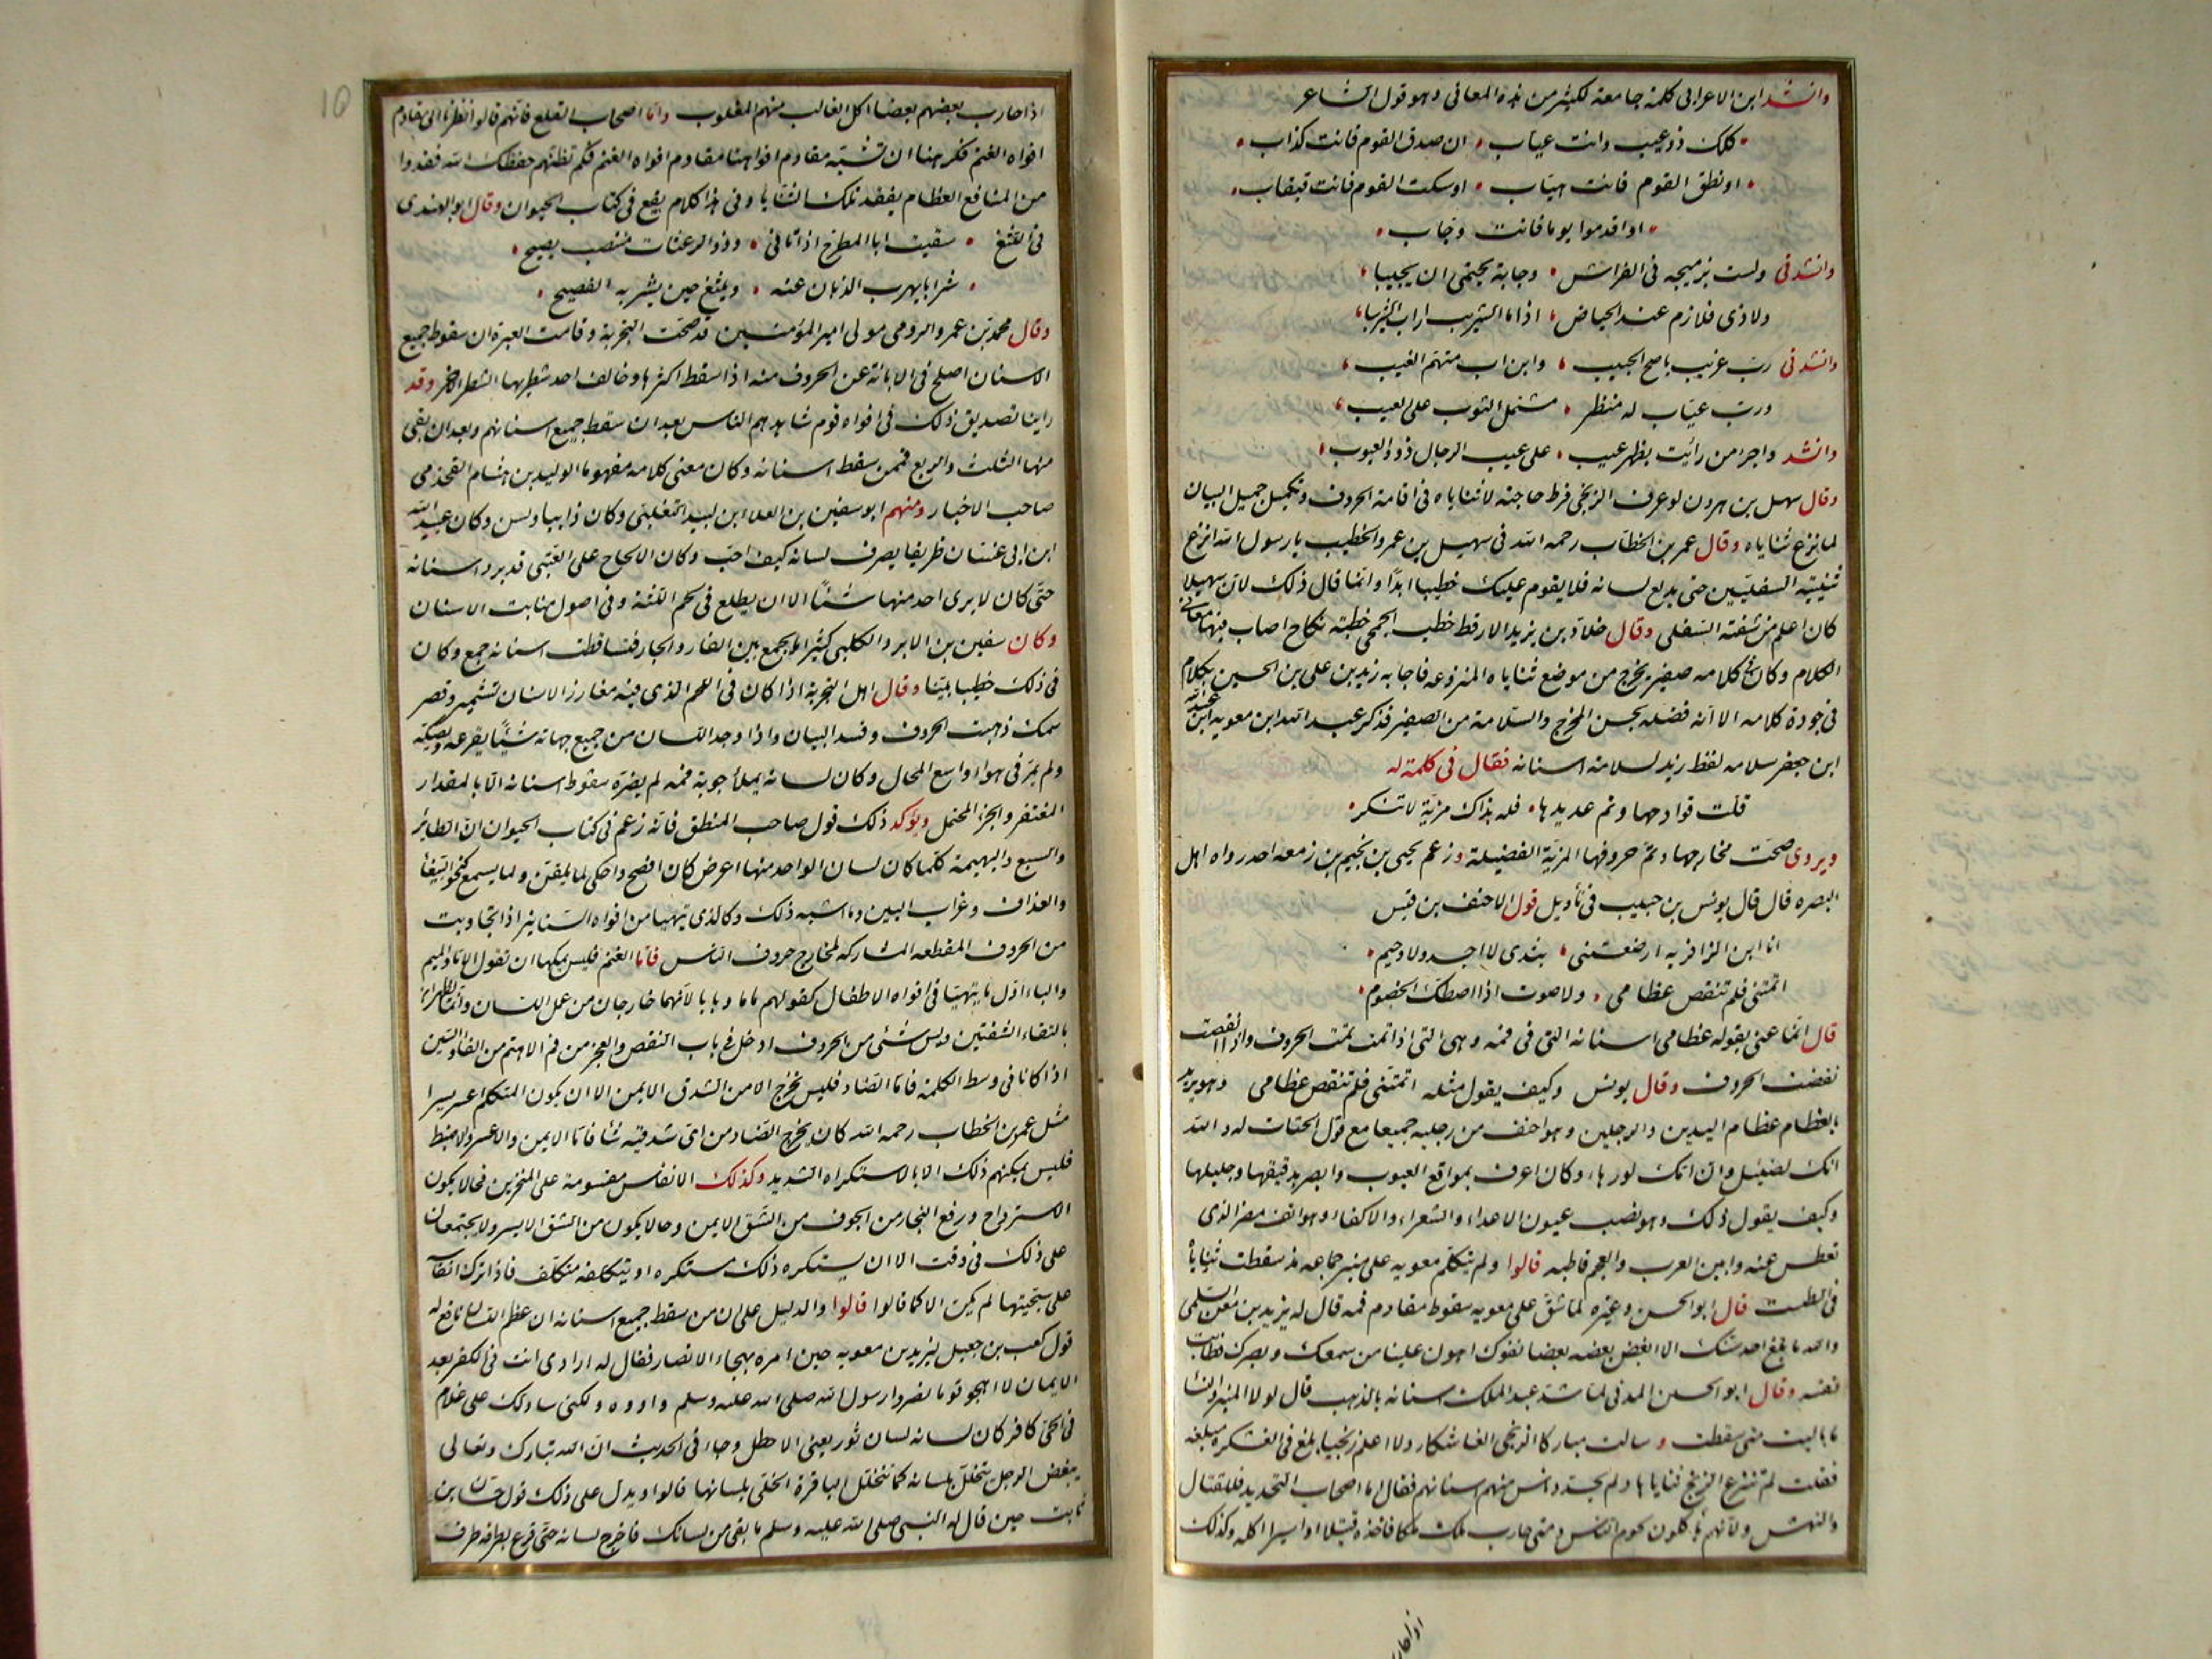 وانشد ابن الاعرابى كلمة جامعة لكثير من هذه المعانى وهو قول الشاعر
كلك ذو عيب وانت عياب ان صدق القوم فانت كذاب
او نطق القوم فانت هياب او سكت القوم فانت قبقاب
او اقدموا يوما فانت وجاب
وانشدنى ولست بزميجة فى الفراش وجابة يحتمى ان يجيبا
ولا ذى قلازم عند الحياض اذا ما الشريب اراب الشريبا
وانشدنى رب غريب ناصح الجيب وابن اب متهم الغيب
ورب عياب له منظر مشتمل الثوب على العيب
وانشد واجرء من رأيت بظهر عيب على عيب الرجال ذوو العيوب
وقال سهل بن هرون لو عرف الزنجى فرط حاجته لاثناياه فى اقامة الحروف وتكميل جميل البيان
لما نزع ثناياه وقال عمر بن الخطاب رحمه الله فى سهيل بن عمرو الخطيب يا رسول الله انزع
ثنيتيه السفليين حتى يدلع لسانه فلا يقوم عليك خطيبا ابدا وانما قال ذلك لان سهيلا
كان اعلم من شفته السفلى وقال خلاد بن يزيد الارقط خطب الجمحى خطبة نكاح اصاب فيها معانى
الكلام وكان فى كلامه صفير يخرج من موضع ثناياه المنزوعة فاجابه زيد بن على بن الحسين بكلام
فى جودة كلامه الا انه فضله بحسن المخرج والسلامة من الصفير فذكر عبد الله ابن معوية ابن عبد الله
ابن جعفر سلامة لفظ زيد لسلامة اسنانه فقال فى كلمة له
قلت قوادحها وتم عديدها فله بذاك مزية لا تنكر
ويروى صحت مخارجها وتم حروفها المزية الفضيلة وزعم يحيى بن نجيم بن زمعه احد رواه اهل
البصره قال قال يونس بن حبيب فى تأويل قول الاحنف بن قيس
انا ابن الزافريه ارضعتنى بثدى لا اجد ولا وخيم
اتمتنى فلم تنقص عظامى ولا صوت اذا اصطك الخصوم
قال انما عنى بقوله عظامى اسنانه التى فى فمه وهى التى اذا تمت تمت الحروف واذا نقصت
نقصت الحروف وقال يونس وكيف يقول مثله اتمتنى فلم تنقص عظامى وهو يريد
بالعظام عظام اليدين والرجلين وهو احنف من رجليه جميعا مع قول الحتات له والله
انك لضئيل وان امك لورهاء وكان اعرف بمواقع العيوب وابصر بدقيقها وجليلها
وكيف يقول ذلك وهو نصب عيون الاعداء والشعراء والاكفاء وهو انف مضر الذى
تعطس عنه وابين العرب والعجم قاطبه قالوا ولم يتكلم معويه على منبر جماعه مذ سقطت ثناياه
فى الطست قال ابو الحسن وغيره لما شق على معويه سقوط مقادم فمه قال له يزيد بن معن السلمى
والله ما بلغ احد سنك الا ابغض بعضه بعضا ففوك اهون علينا من سمعك وبصرك فطابت
نفسه وقال ابو الحسن المدنى لما شد عبد الملك اسنانه بالذهب قال لولا المنبر والنساء
ما باليت متى سقطت وسالت مباركا الزنجى الفاشكار ولا اعلم زنجيا بلغ فى الفشكرة مبلغه
فقلت لم تنزع الزنج ثناياها ولم يحدد ناس منهم اسنانهم فقال اما اصحاب التحديد فللقتال
والنهش ولانهم ياكلون لحوم الناس ومتى حارب ملك ملكا فاخذه قتيلا او اسيرا اكله وكذلك
اذا حارب
اذا حارب بعضهم بعضا اكل الغالب منهم المغلوب واما اصحاب القلع فانهم قالوا نظرنا الى مقادم
افواه الغنم فكرهنا ان تشبه مقادم افواهنا مقادم افواه الغنم فكم تظنهم حفظك الله فقدوا
من المنافع العظام بفقد تلك الثنايا وفى هذا كلام يقع فى كتاب الحيوان وقال ابو الهندى
فى اللثغ سقيت ابا المطرح اذ اتانى وذو الرعثات منتصب يصيح
شرابا يهرب الذبان عنه ويلثغ حين يشربه الفصيح
وقال محمد بن عمرو الرومى مولى امير المؤمنين قد صحت التجربة وقامت العبرة ان سقوط جميع
الاسنان اصلح فى الابانة عن الحروف منه اذا سقط اكثرها وخالف احد شطريها الشطر الاخر وقد
راينا تصديق ذلك فى افواه قوم شاهدهم الناس بعد ان سقط جميع اسنانهم وبعد ان بقى
منها الثلث والربع فممن سقط اسنانه وكان معنى كلامه مفهوما الوليد بن هشام القحذمى
صاحب الاخبار ومنهم ابو سفين بن العلا ابن لبيد التغلبى وكان ذا بيان ولسن وكان عبيد الله
ابن ابى غسان ظريفا يصرف لسانه كيف احب وكان الالحاح على القيئى قد برد اسنانه
حتى كان لا يرى احد منها شئا الا ان يطلع فى لحم اللثة وفى اصول منابت الاسنان
وكان سفين بن الابرد الكلبى كثيرا ما يجمع بين الحار والقار فتساقطت اسنانه جمع وكان
فى ذلك خطيبا بينا وقال اهل التجربة اذا كان فى اللحم الذى فيه مغارز الاسنان تشمير وقصر
سمك ذهبت الحروف وفسد البيان واذا وجد اللسان من جميع جهاته شيئا يقرعه ويصكه
ولم يمر فى هواء واسع المجال وكان لسانه يملأ جوبة فمه لم يضره سقوط اسنانه الا بالمقدار
المغتفر والجزء المحتمل ويؤكد ذلك قول صاحب المنطق فانه زعم فى كتاب الحيوان ان الطائر
والسبع والبهيمة كلما كان لسان الواحد منها اعرض كان افصح واحكى لما يلقن ولما يسمع نحو الببغاء
والغداف وغراب البين وما اشبه ذلك وكالذى يتهيأ من افواه السنانير اذا تجاوبت
من الحروف المقطعه المشاركه لمخارج حروف الناس فاما الغنم فليس يمكنها ان تقول الا ما والميم
والباء اول ما يتهيأ فى افواه الاطفال كقولهم ماما وبابا لانهما خارجان من عمل اللسان وانما يظهران
بالتقاء الشفتين وليس شئى من الحروف ادخل فى باب النقص والعجز من فم الاهتم من الفاء والسين
اذا كانا فى وسط الكلمة فاما الضاد فليس تخرج الا من الشدق الايمن الا ان يكون المتكلم اعسر يسرا
مثل عمر بن الخطاب رحمه الله كان يخرج الضاد من اى شدقيه شا فاما الايمن والاعسر والاضبط
فليس يمكنهم ذلك الا بالاستكراه الشديد وكذلك الانفاس مقسومة على المنخرين فحالا يكون
الاسترواح ودفع البخار من الجوف من الشق الايمن وحالا يكون من الشق الايسر ولا يجتمعان
على ذلك فى وقت الا ان يستكره ذلك مستكره او يتكلفه متكلف فاذا ترك انفاسه
على سجيتها لم يكن الا كما قالوا قالوا والدليل على ان من سقط جميع اسنانه ان عظم اللسان نافع له
قول كعب بن جعيل ليزيد بن معويه حين امره بهجاء الانصار فقال له ارادى انت فى الكفر بعد
الايمان لا اهجو قوما نصروا رسول الله صلى الله عليه وسلم واووه ولكنى سادلك على غلام
فى الحى كافر كان لسانه لسان ثور يعنى الاخطل وجاء فى الحديث ان الله تبارك وتعالى
يبغض الرجل يتخلل بلسانه كما تتخلل الباقرة الخلى بلسانها قالوا ويدل على ذلك قول حسان بن
ثابت حين قال له النبى صلى الله عليه وسلم ما بقى من لسانك فاخرج لسانه حتى قرع بطرفه طرف